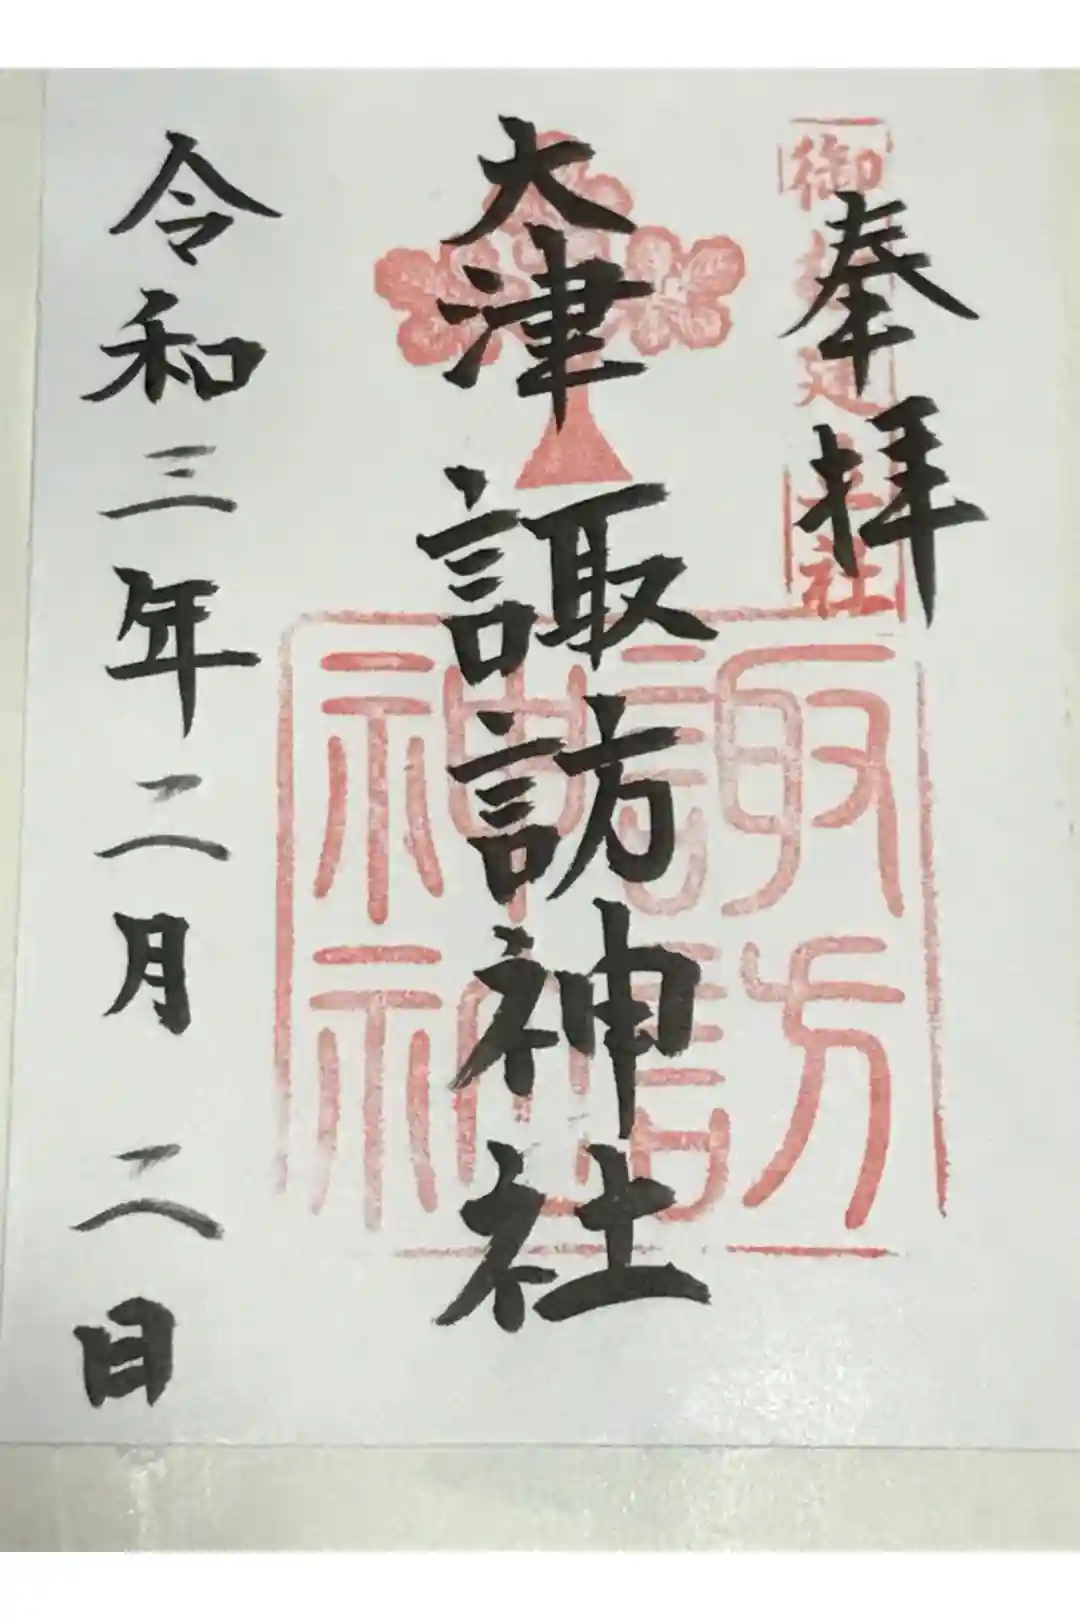 奉拝
大津諏訪神社
諏訪神社
令和三年二月二日